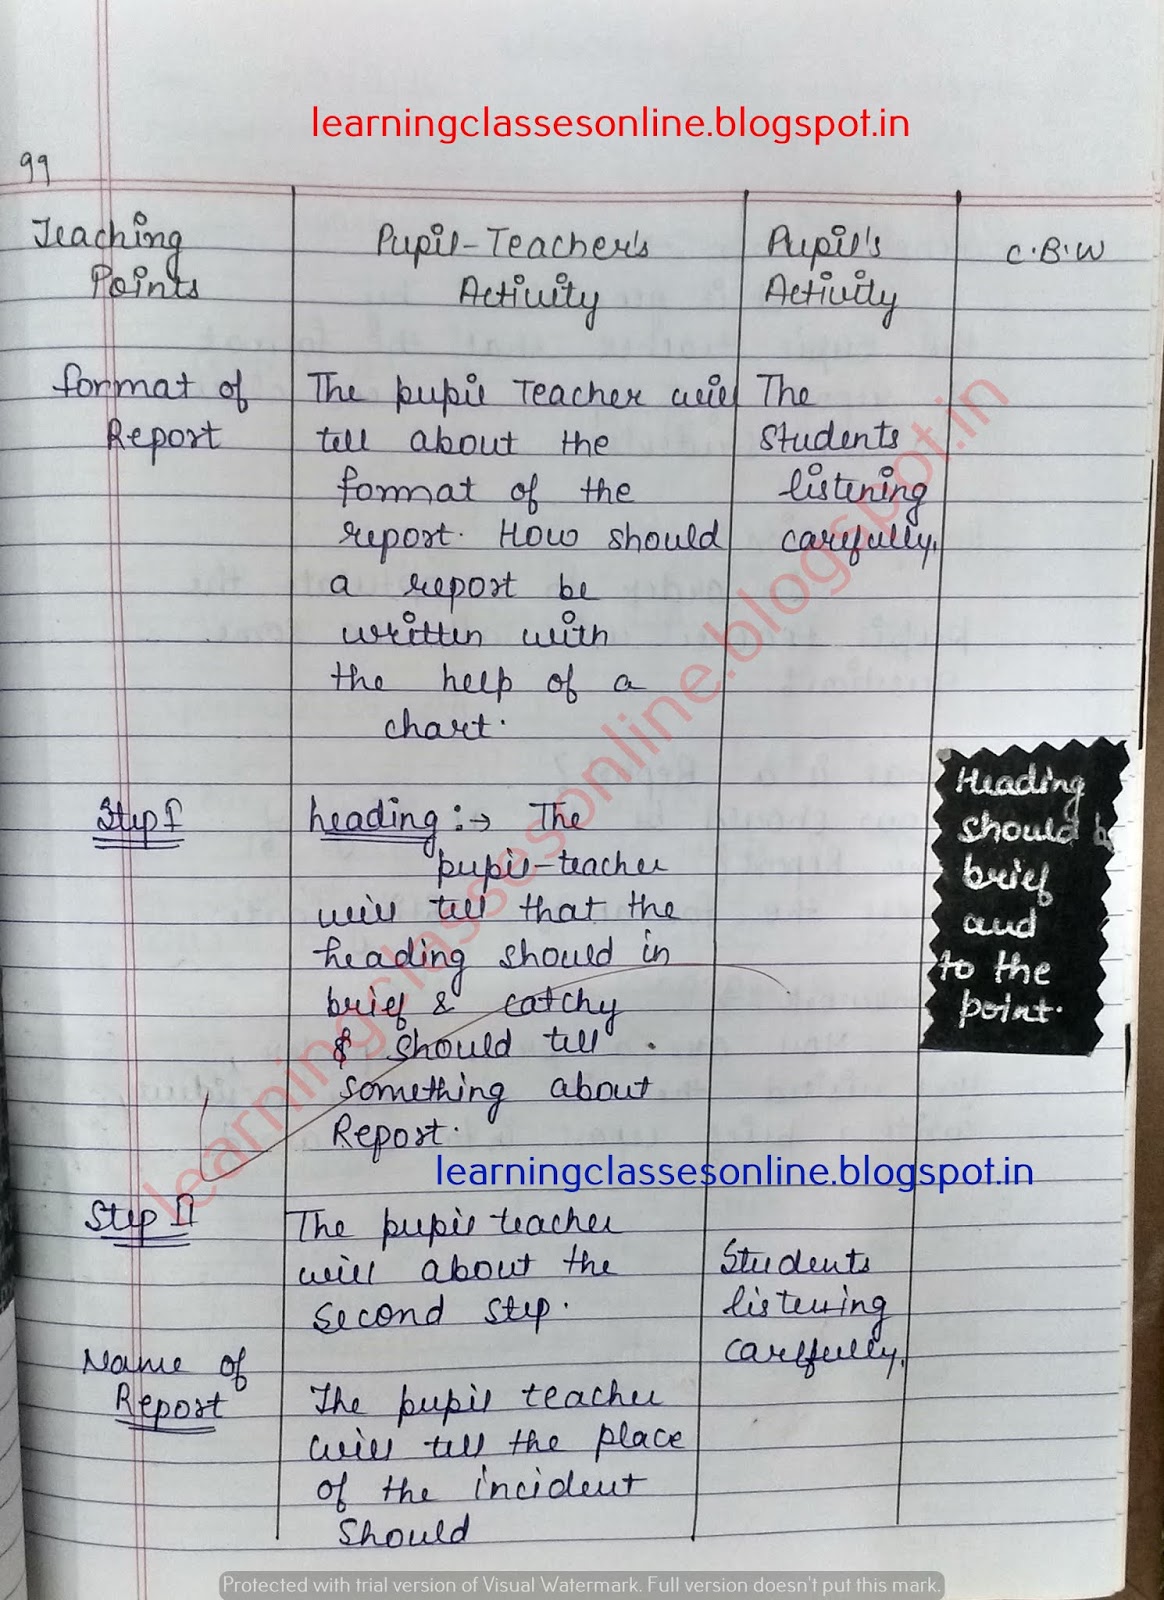 learningclassesonline.blogspot.in
99
Teaching Points
Pupil-Teacher's Activity
Pupil's Activity
C.B.W
format of
Report
The pupil Teacher will
tell about the
format of the
report. How should
a report be
written with
the help of a
chart.
The
students
listening
carefully.
Step I
heading :→ The
pupil-teacher
will tell that the
heading should in
brief & catchy
& should tell
something about
Report.
Heading
should be
brief
and
to the
point.
learningclassesonline.blogspot.in
Step II
The pupil teacher
will about the
second step.
Students
listening
carefully.
Name of
Report
The pupil teacher
will tell the place
of the incident
should
learningclassesonline.blogspot.in
Protected with trial version of Visual Watermark. Full version doesn't put this mark.